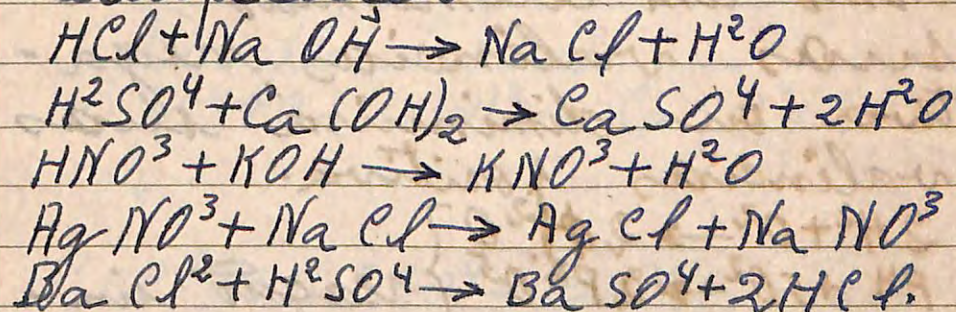 HCl + NaOH → NaCl + H²O
H²SO⁴ + Ca(OH)₂ → CaSO⁴ + 2H²O
HNO³ + KOH → KNO³ + H²O
AgNO³ + NaCl → AgCl + NaNO³
BaCl² + H²SO⁴ → BaSO⁴ + 2HCl.